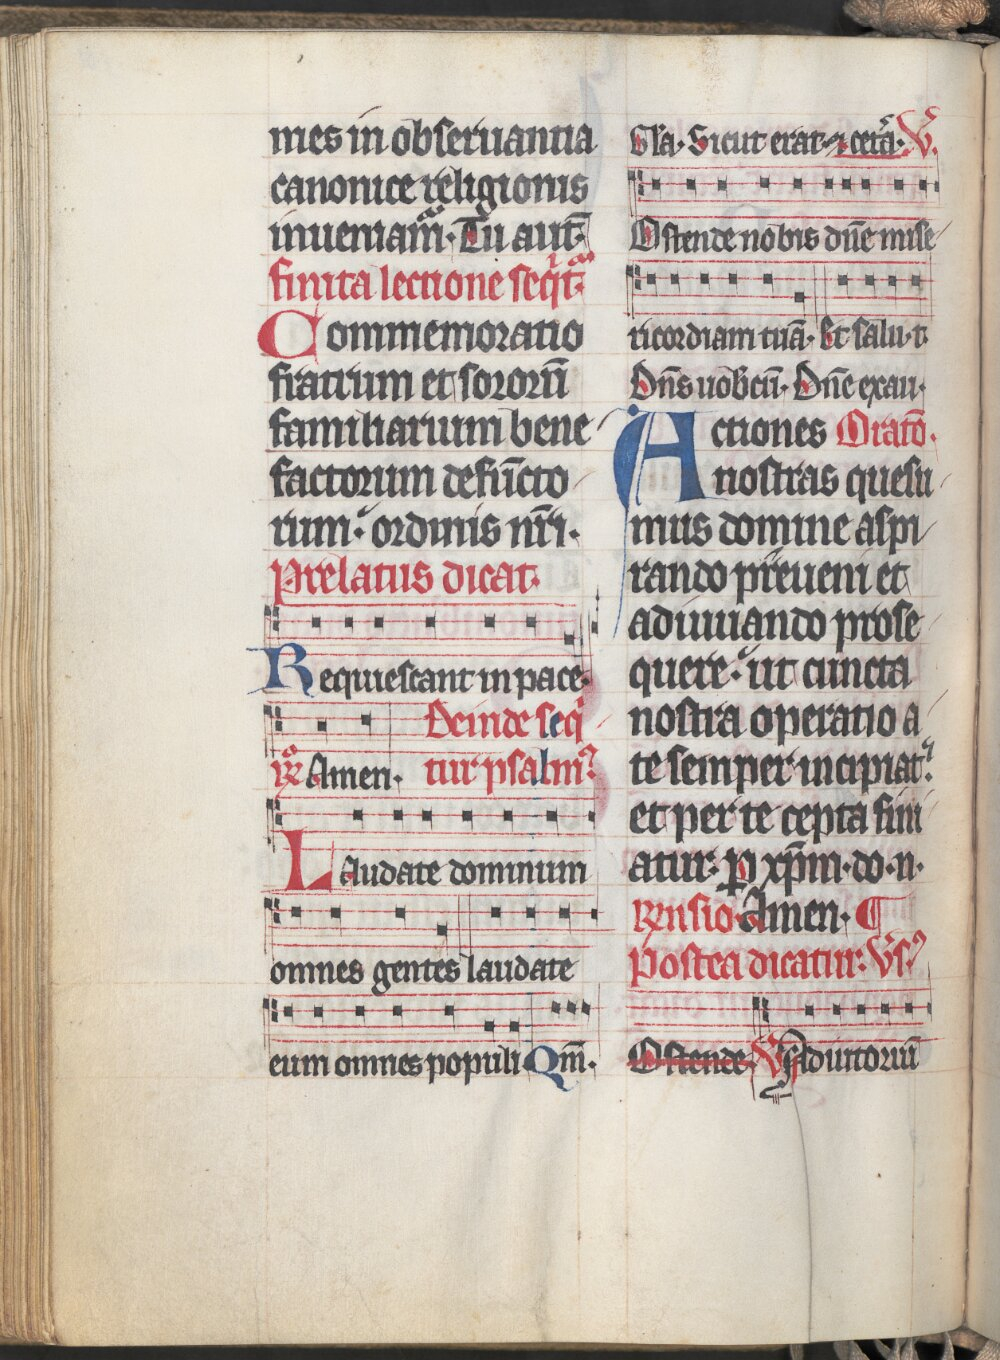 mes in obseruantia
canonice religionis
inueniam̄. Tu aut̄
finita lectione seq̄t᷑
Commemoratio
fratrum et sororū
familiarium bene
factorum defūcto
rum. ordinis nr̄i.
Prelatus dicat.
Requiescant in pace.
Deinde seq̄
℟ Amen. tur psalm᷒
Laudate dominum
omnes gentes laudate
eum omnes populi Qm̄.
Gl̄a. Sicut erat. ⁊ cetā. ℣.
Ostende nobis dn̄e mise
ricordiam tuā. Et salu. t.
Dn̄s uobcū. Dn̄e exau.
Actiones Oratō.
nostras quesu
mus domine aspi
rando preueni et
adiuuando prose
quere. ut cuncta
nostra operatio a
te semper incipiat.
et per te cepta fini
atur. p xp̄m. do. n.
Rn̄sio Amen. ¶
Postea dicatur. v̄s᷒
Ostende ℣ Adiutoriū